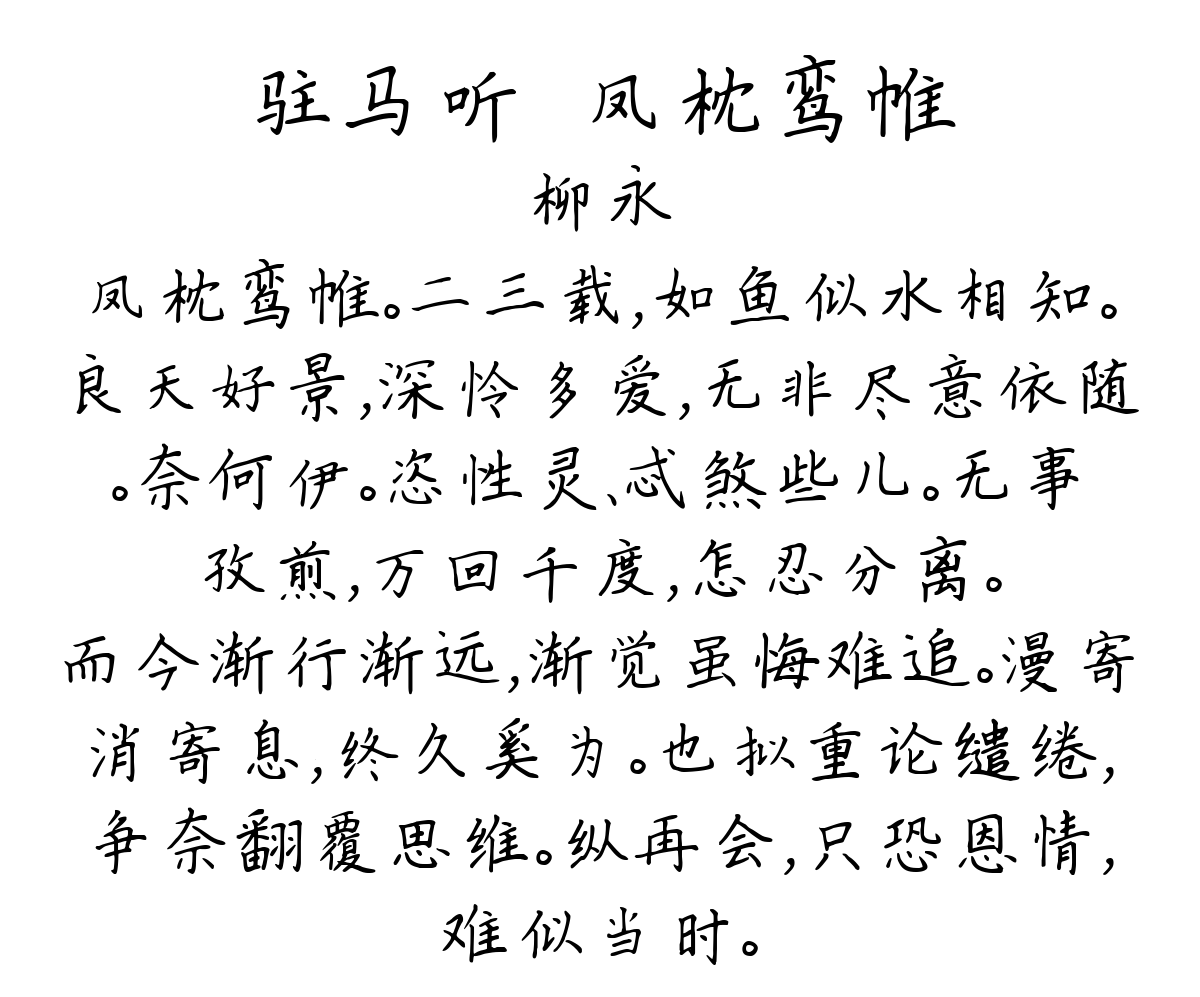 驻马听 凤枕鸾帷
柳永
凤枕鸾帷。二三载,如鱼似水相知。
良天好景,深怜多爱,无非尽意依随
。奈何伊。恣性灵、忒煞些儿。无事
孜煎,万回千度,怎忍分离。
而今渐行渐远,渐觉虽悔难追。漫寄
消寄息,终久奚为。也拟重论缱绻,
争奈翻覆思维。纵再会,只恐恩情,
难似当时。